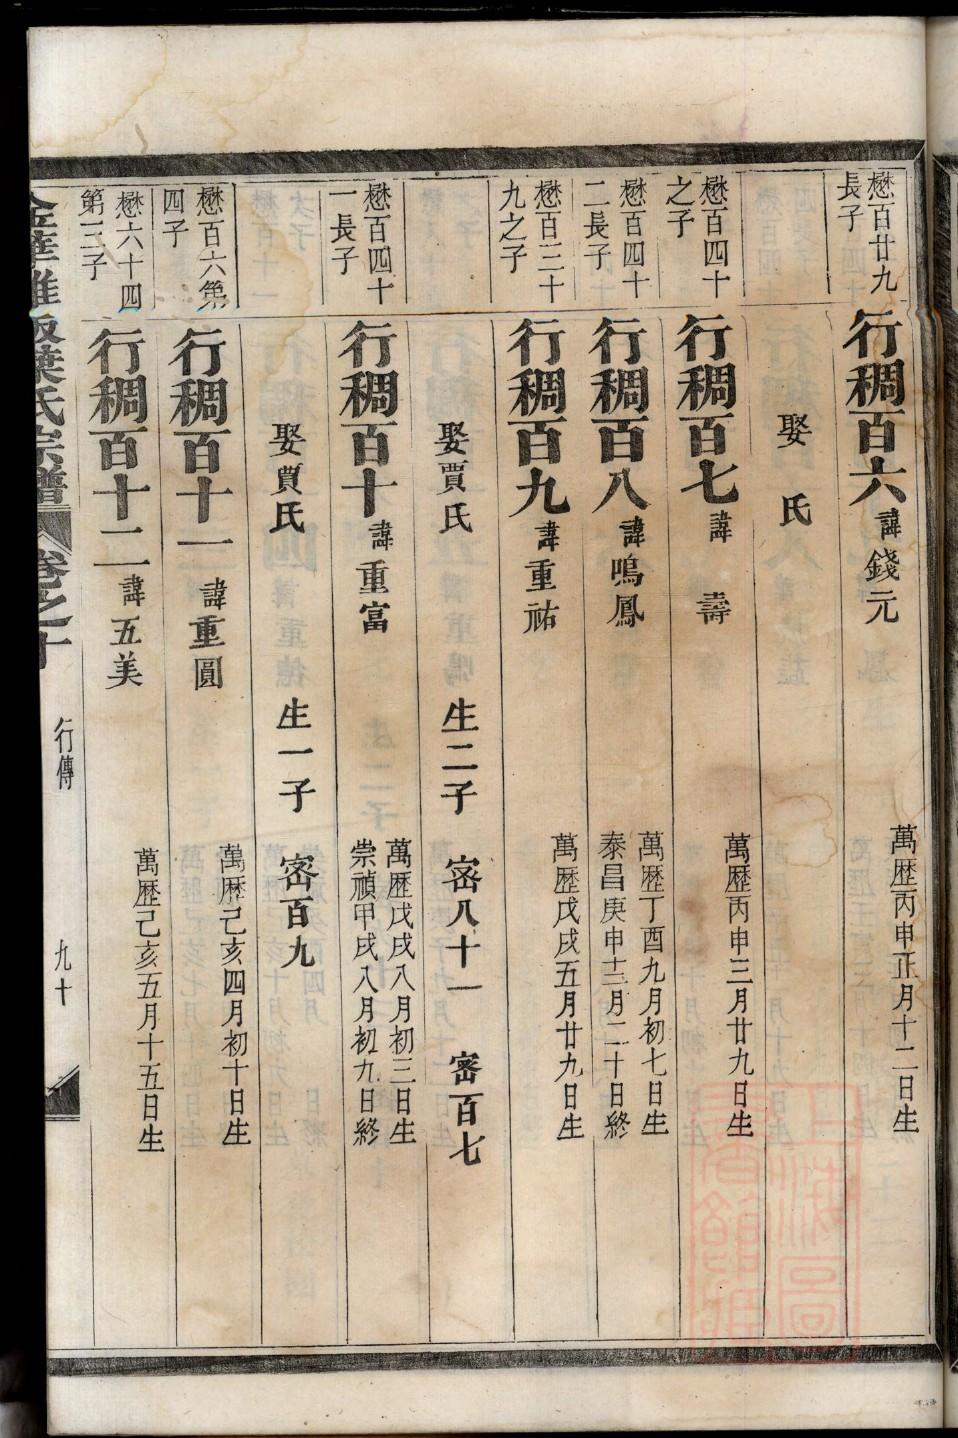 懋百廿九
長子
行稠百六 諱錢元 萬歷丙申正月十二日生
娶 氏
懋百四十
之子
行稠百七 諱 壽 萬歷丙申三月廿九日生
懋百四十
二長子
行稠百八 諱鳴鳳 萬歷丁酉九月初七日生
泰昌庚申十二月二十日終
懋百三十
九之子
行稠百九 諱重祐 萬歷戊戌五月廿九日生
娶賈氏 生二子 宻八十一 宻百七
懋百四十
一長子
行稠百十 諱重富 萬歷戊戌八月初三日生
崇禎甲戌八月初九日終
娶賈氏 生一子 宻百九
懋百六第
四子
行稠百十一 諱重圓 萬歷己亥四月初十日生
懋六十四
第二子
行稠百十二 諱五美 萬歷己亥五月十五日生
葉氏宗譜 卷之十 行傳 九十